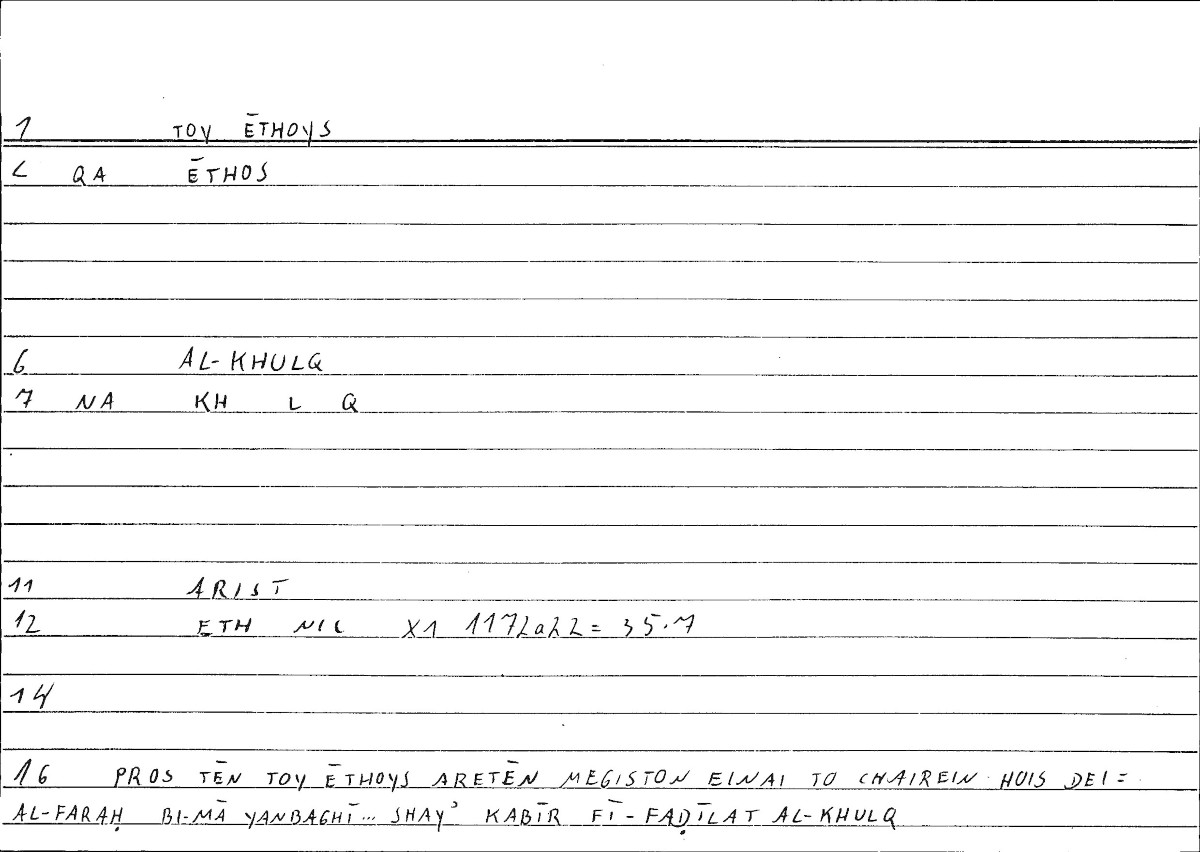 1 TOY ĒTHOYS
2 QA ĒTHOS
6 AL-KHULQ
7 NA KH L Q
11 ARIST
12 ETH NIC X1 1172a22 = 35.7
14
16 PROS TĒN TOY ĒTHOYS ARETĒN MEGISTON EINAI TO CHAIREIN HOIS DEI =
AL-FARAḤ BI-MĀ YANBAGHĪ... SHAYʾ KABĪR FĪ-FAḌĪLAT AL-KHULQ